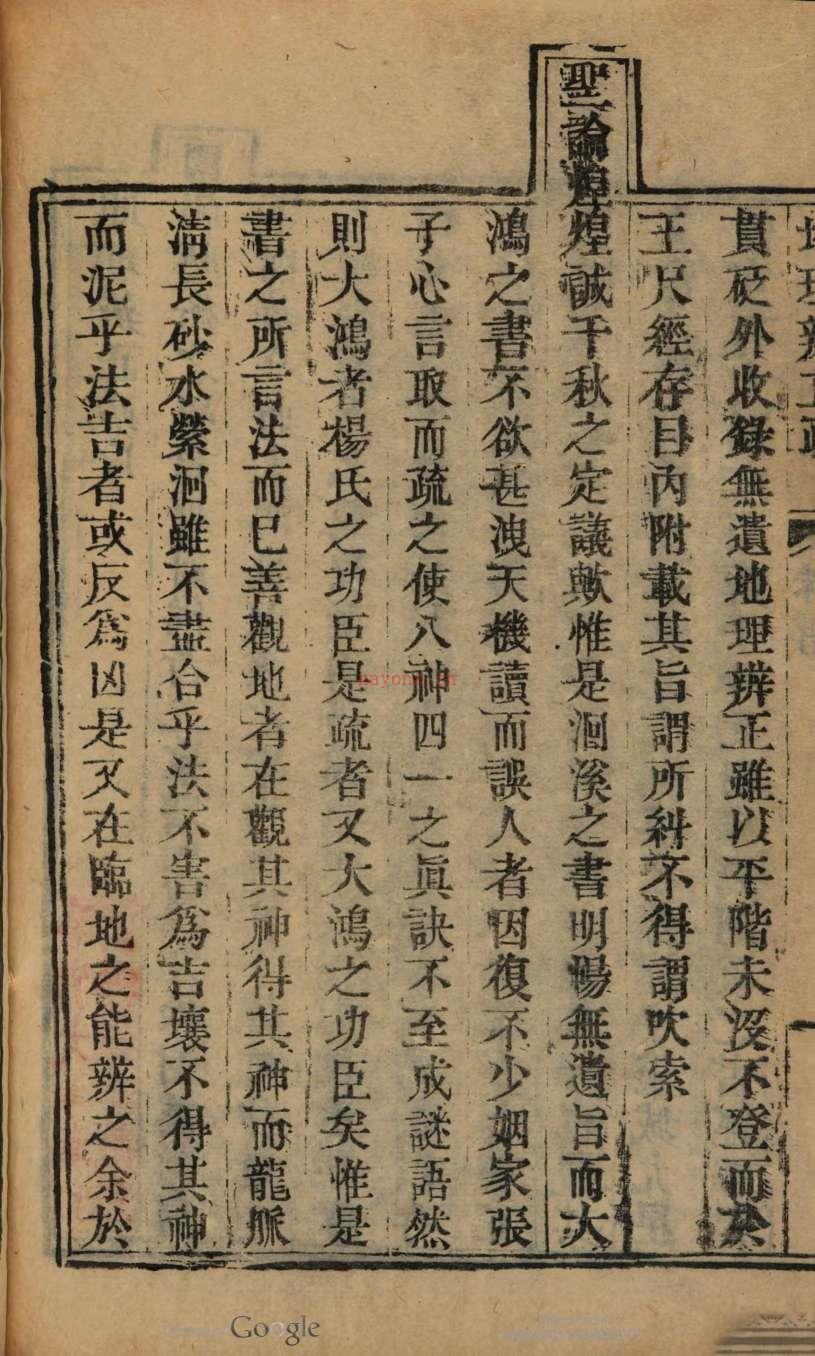 地理辨正疏
貫砭外收錄無遺地理辨正雖以平階未沒不登而於
玉尺經存目內附載其旨謂所糾不得謂吹索
聖論煌煌誠千秋之定議歟惟是洄溪之書明暢無遺旨而大
鴻之書不欲甚洩天機讀而誤人者因復不少姻家張
子心言取而疏之使八神四一之眞訣不至成謎語然
則大鴻者楊氏之功臣是疏者又大鴻之功臣矣惟是
書之所言法而已善觀地者在觀其神得其神而龍脈
淸長砂水縈洄雖不盡合乎法不害爲吉壤不得其神
而泥乎法吉者或反爲凶是又在臨地之能辨之余於
Google